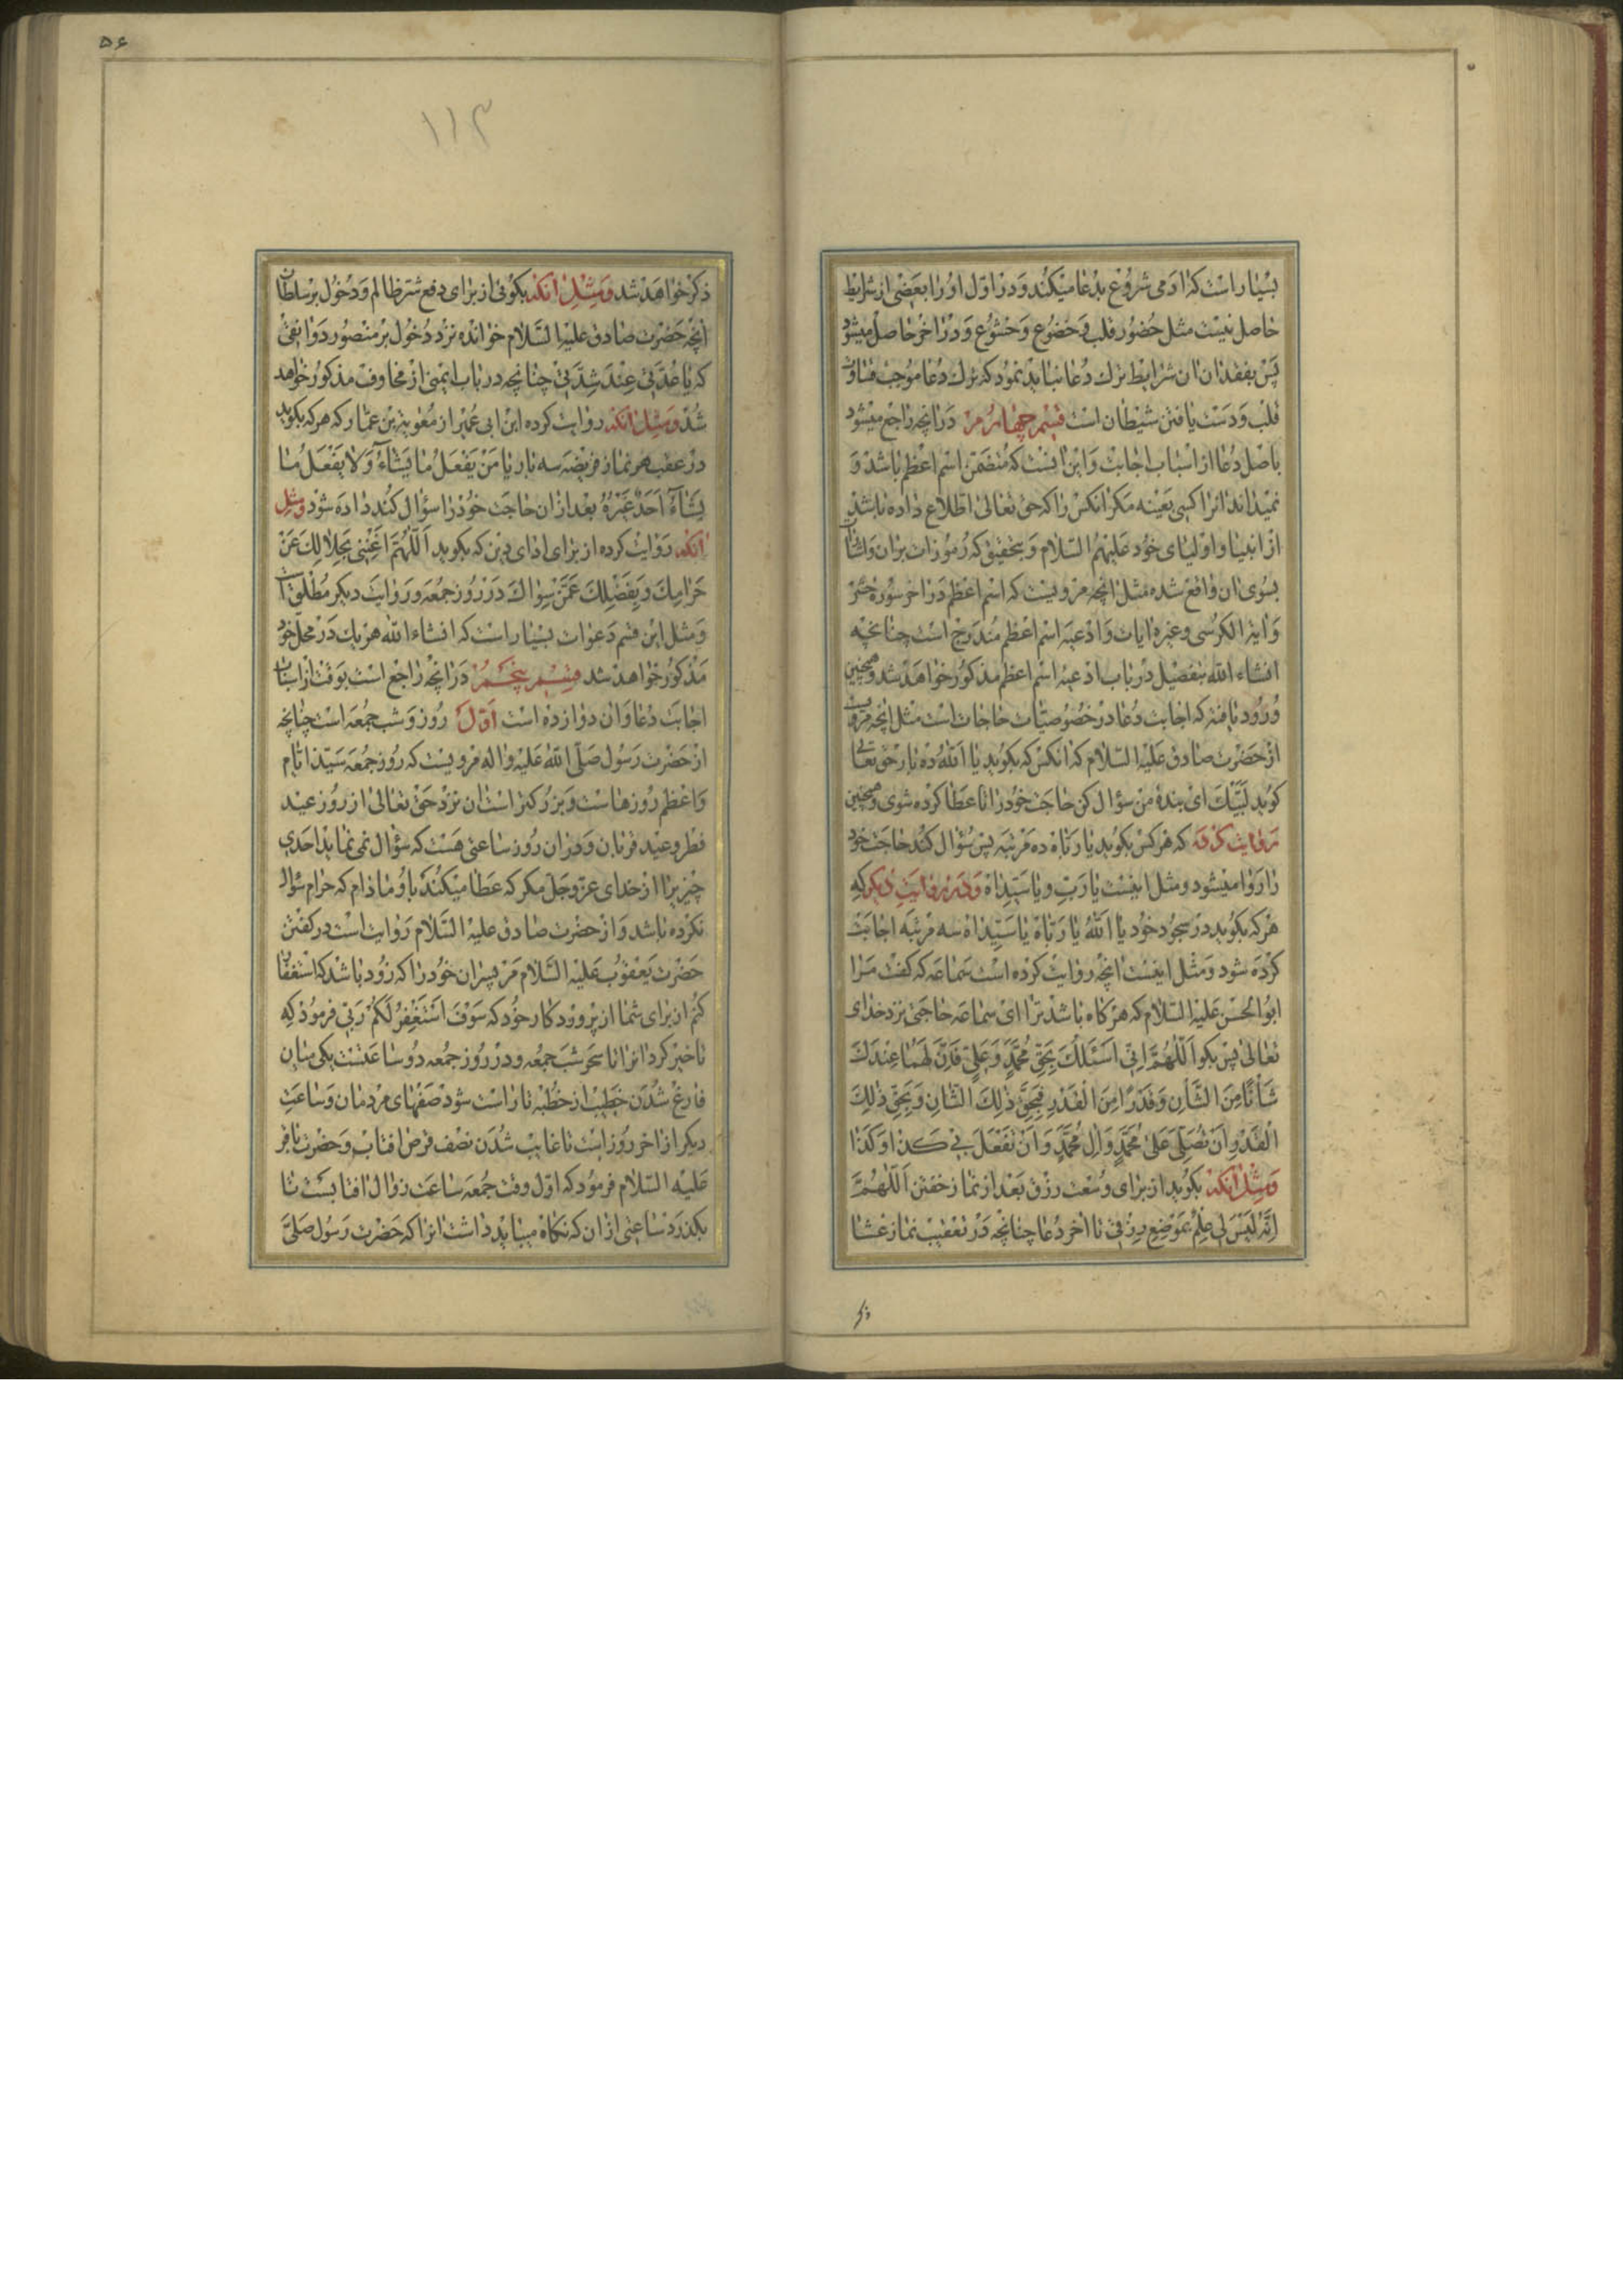 بسیار است که ادمی شروع بدعا میکند و در اول او را بعضی از شرایط
حاصل نیست مثل حضور قلب و خضوع و خشوع و در اخر حاصل میشود
پس بفقدان ان شرایط ترک دعا نباید نمود که ترک دعا موجب قساوت
قلب و دست یافتن شیطان است قسم چهارم در انچه راجع میشود
باصل دعا از اسباب اجابت و این اینست که متضمن اسم اعظم باشد و
نمیداند انرا کسی بعینه مکر انکس را که حق تعالی اطلاع داده باشد
از انبیا و اولیای خود علیهم السلام و بتحقیق که رموزات بران و اشارات
بسوی ان واقع شده مثل انچه مرویست که اسم اعظم در اخر سوره حشر
و ایة الکرسی و غیره ایات و ادعیه اسم اعظم مندرج است چنانچه
انشاء الله بتفصیل در باب ادعیه اسم اعظم مذکور خواهد شد و همچنین
ورود یافته که اجابت دعا در خصوصیات حاجات است مثل انچه مرویست
از حضرت صادق علیه السلام که انکس که بکوید یا الله ده بار حق تعالی
کوید لبیک ای بنده من سؤال کن حاجت خود را تا عطا کرده شوی و همچنین
روایت کرده که هر کس بکوید یا رباه ده مرتبه پس سؤال کند حاجت خود
را روا میشود و مثل اینست یا رب و یا سیداه و در روایت دیکر که
هر که بکوید در سجود خود یا الله یا رباه یا سیداه سه مرتبه اجابت
کرده شود و مثل اینست انچه روایت کرده است سماعه که کفت مرا
ابو الحسن علیه السلام که هر کاه باشد ترا ای سماعه حاجتی نزد خدای
تعالی پس بکو اللهم انی اسئلک بحق محمد و علی فان لهما عندک
شأنا من الشأن و قدرا من القدر فبحق ذلک الشان و بحق ذلک
القدر ان تصلی علی محمد و ال محمد و ان تفعل بی کذا و کذا
و مثل انکه بکوید از برای وسعت رزق بعد از نماز خفتن اللهم
انه لیس لی علم بموضع رزقی تا اخر دعا چنانچه در تعقیب نماز عشا
ذکر
۵۶
۱۱۳
ذکر خواهد شد و مثل انکه بکوئی از برای دفع شر ظالم و دخول بر سلطان
انچه حضرت صادق علیه السلام خوانده نزد دخول بر منصور دوانقی
که یا عدتی عند شدتی چنانچه در باب ایمنی از مخاوف مذکور خواهد
شد و مثل انکه روایت کرده ابن ابی عمیر از معویة بن عمار که هر که بکوید
در عقب هر نماز فریضه سه بار یا من یفعل ما یشاء و لا یفعل ما
یشاء احد غیره بعد ازان حاجت خود را سؤال کند داده شود و مثل
انکه روایت کرده از برای ادای دین که بکوید اللهم اغننی بحلالک عن
حرامک و بفضلک عمن سواک در روز جمعه و روایت دیکر مطلق است
و مثل این قسم دعوات بسیار است که انشاء الله هر یک در محل خود
مذکور خواهد شد قسم پنجم در انچه راجع است بوقت از اسباب
اجابت دعا و ان دوازده است اول روز و شب جمعه است چنانچه
از حضرت رسول صلی الله علیه و اله مرویست که روز جمعه سید ایام
و اعظم روزهاست و بزرکتر است ان نزد حق تعالی از روز عید
فطر و عید قربان و در ان روز ساعتی هست که سؤال نمی نماید احدی
چیزیرا از خدای عز و جل مکر که عطا میکند باو مادام که حرام سؤال
نکرده باشد و از حضرت صادق علیه السلام روایت است در کفتن
حضرت یعقوب علیه السلام مر پسران خود را که زود باشد که استغفار
کنم از برای شما از پروردکار خود که سوف استغفر لکم ربی فرمود که
تاخیر کرد انرا تا سحر شب جمعه و در روز جمعه دو ساعتست یکی میان
فارغ شدن خطیب از خطبه تا راست شود صفهای مردمان و ساعت
دیکر از اخر روز است تا غایب شدن نصف قرص افتاب و حضرت باقر
علیه السلام فرمود که اول وقت جمعه ساعت زوال افتابست تا
بکذرد ساعتی ازان که نکاه میباید داشت انرا که حضرت رسول صلی